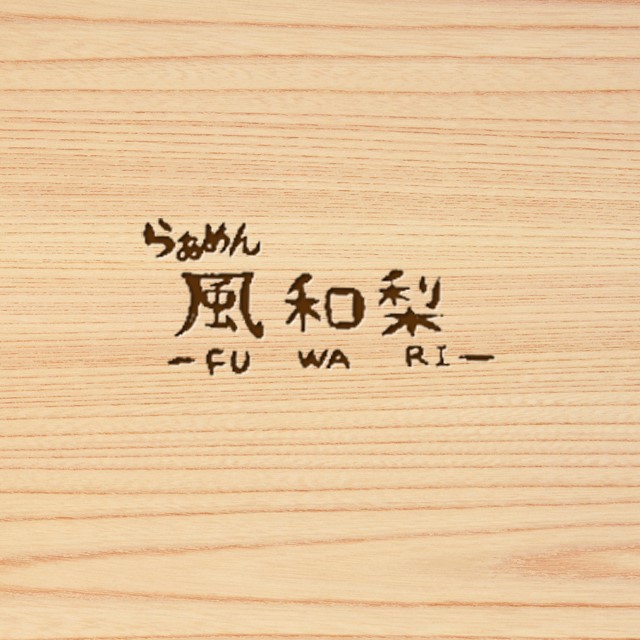 らぁめん
風和梨
-FU WA RI-